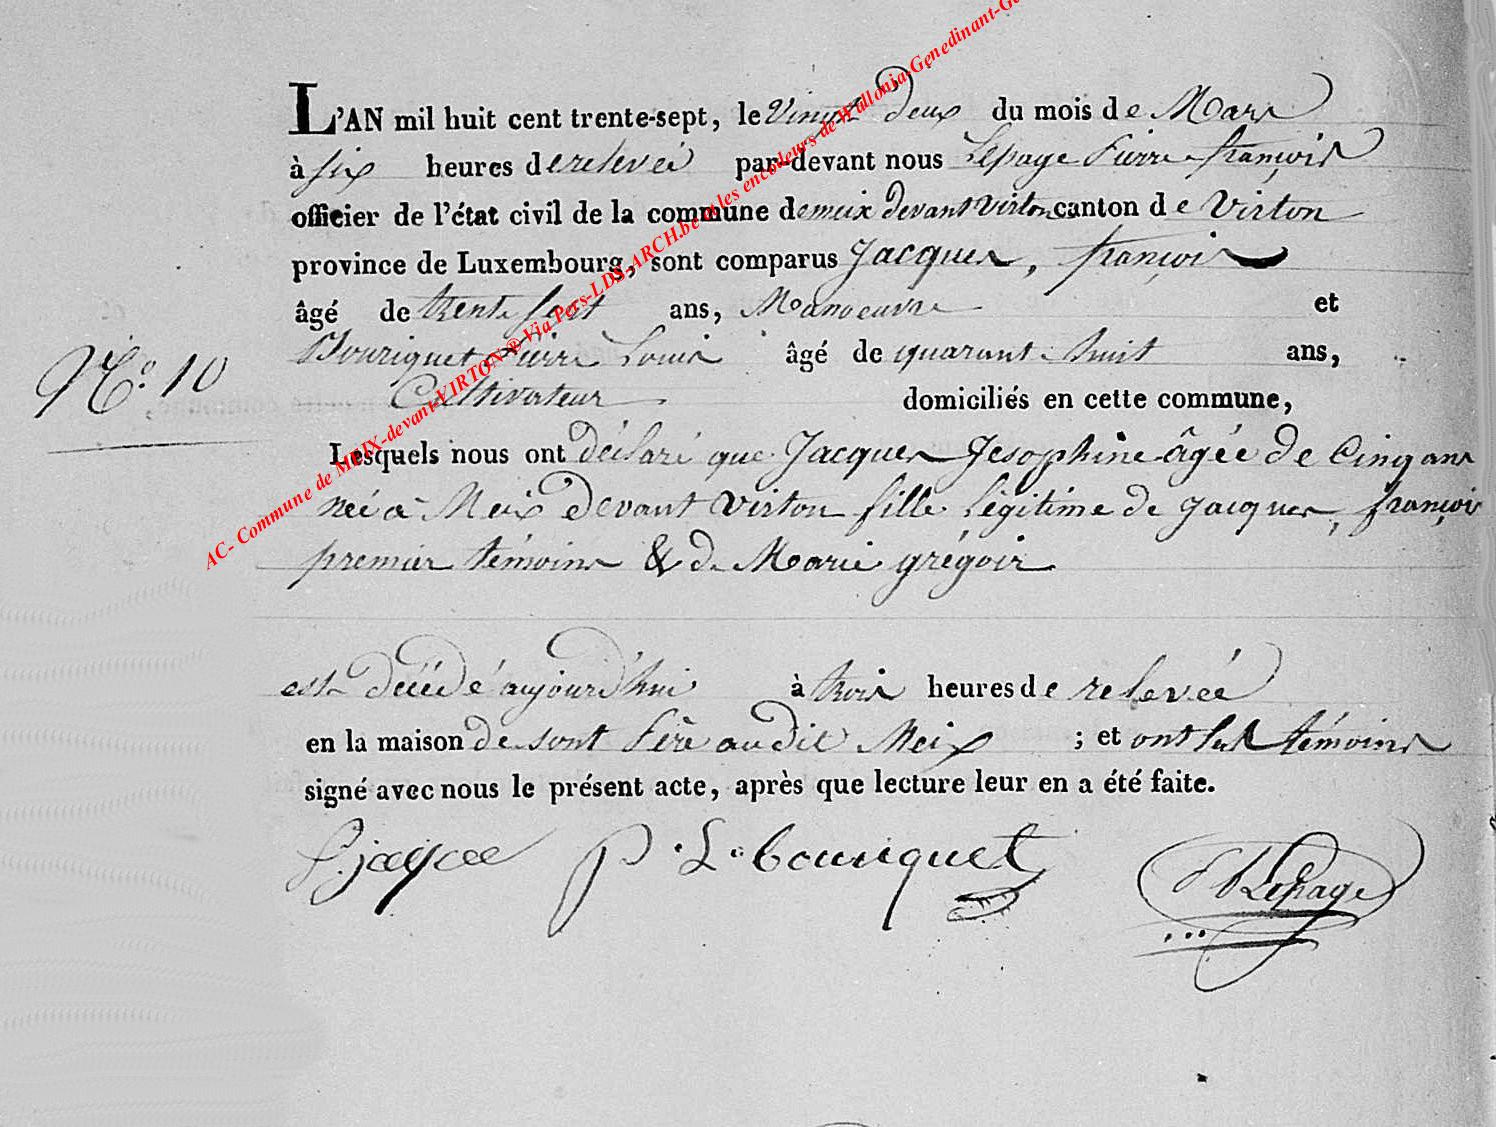 L'AN mil huit cent trente-sept, le Vingt deux du mois de Mars
à six heures de relevée par-devant nous Lepage Pierre françois
officier de l'état civil de la commune de meix devant Virton canton de Virton
province de Luxembourg, sont comparus Jacques, françois
âgé de trente sept ans, Manoeuvre et
Bouriquet Pierre Louis âgé de quarante huit ans,
N.o 10
Cultivateur domiciliés en cette commune,
Lesquels nous ont déclaré que Jacques Jesophine âgée de Cinq ans
née à Meix Devant Virton fille légitime de Jacques, françois
premier témoins & de Marie grégoir
est décédé aujourd'hui à trois heures de relevée
en la maison de sont Père au dit Meix ; et ont les témoins
signé avec nous le présent acte, après que lecture leur en a été faite.
P. L. bouriquet Lepage
AC- Commune de MEIX-devant-VIRTON ® Via Pers-LDS-ARCH.be et les encodeurs de Wallonia-Genedinant-Ge